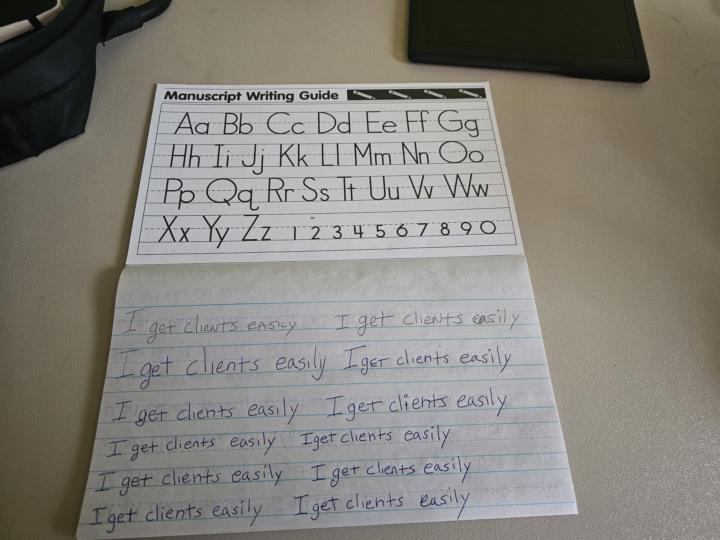 Manuscript Writing Guide
Aa Bb Cc Dd Ee Ff Gg
Hh Ii Jj Kk Ll Mm Nn Oo
Pp Qq Rr Ss Tt Uu Vv Ww
Xx Yy Zz 1 2 3 4 5 6 7 8 9 0
I get clients EASILY I get clients easily
I get clients easily I get clients easily
I get clients easily I get clients easily
I get clients easily I get clients easily
I get clients easily I get clients easily
I get clients easily I get clients easily